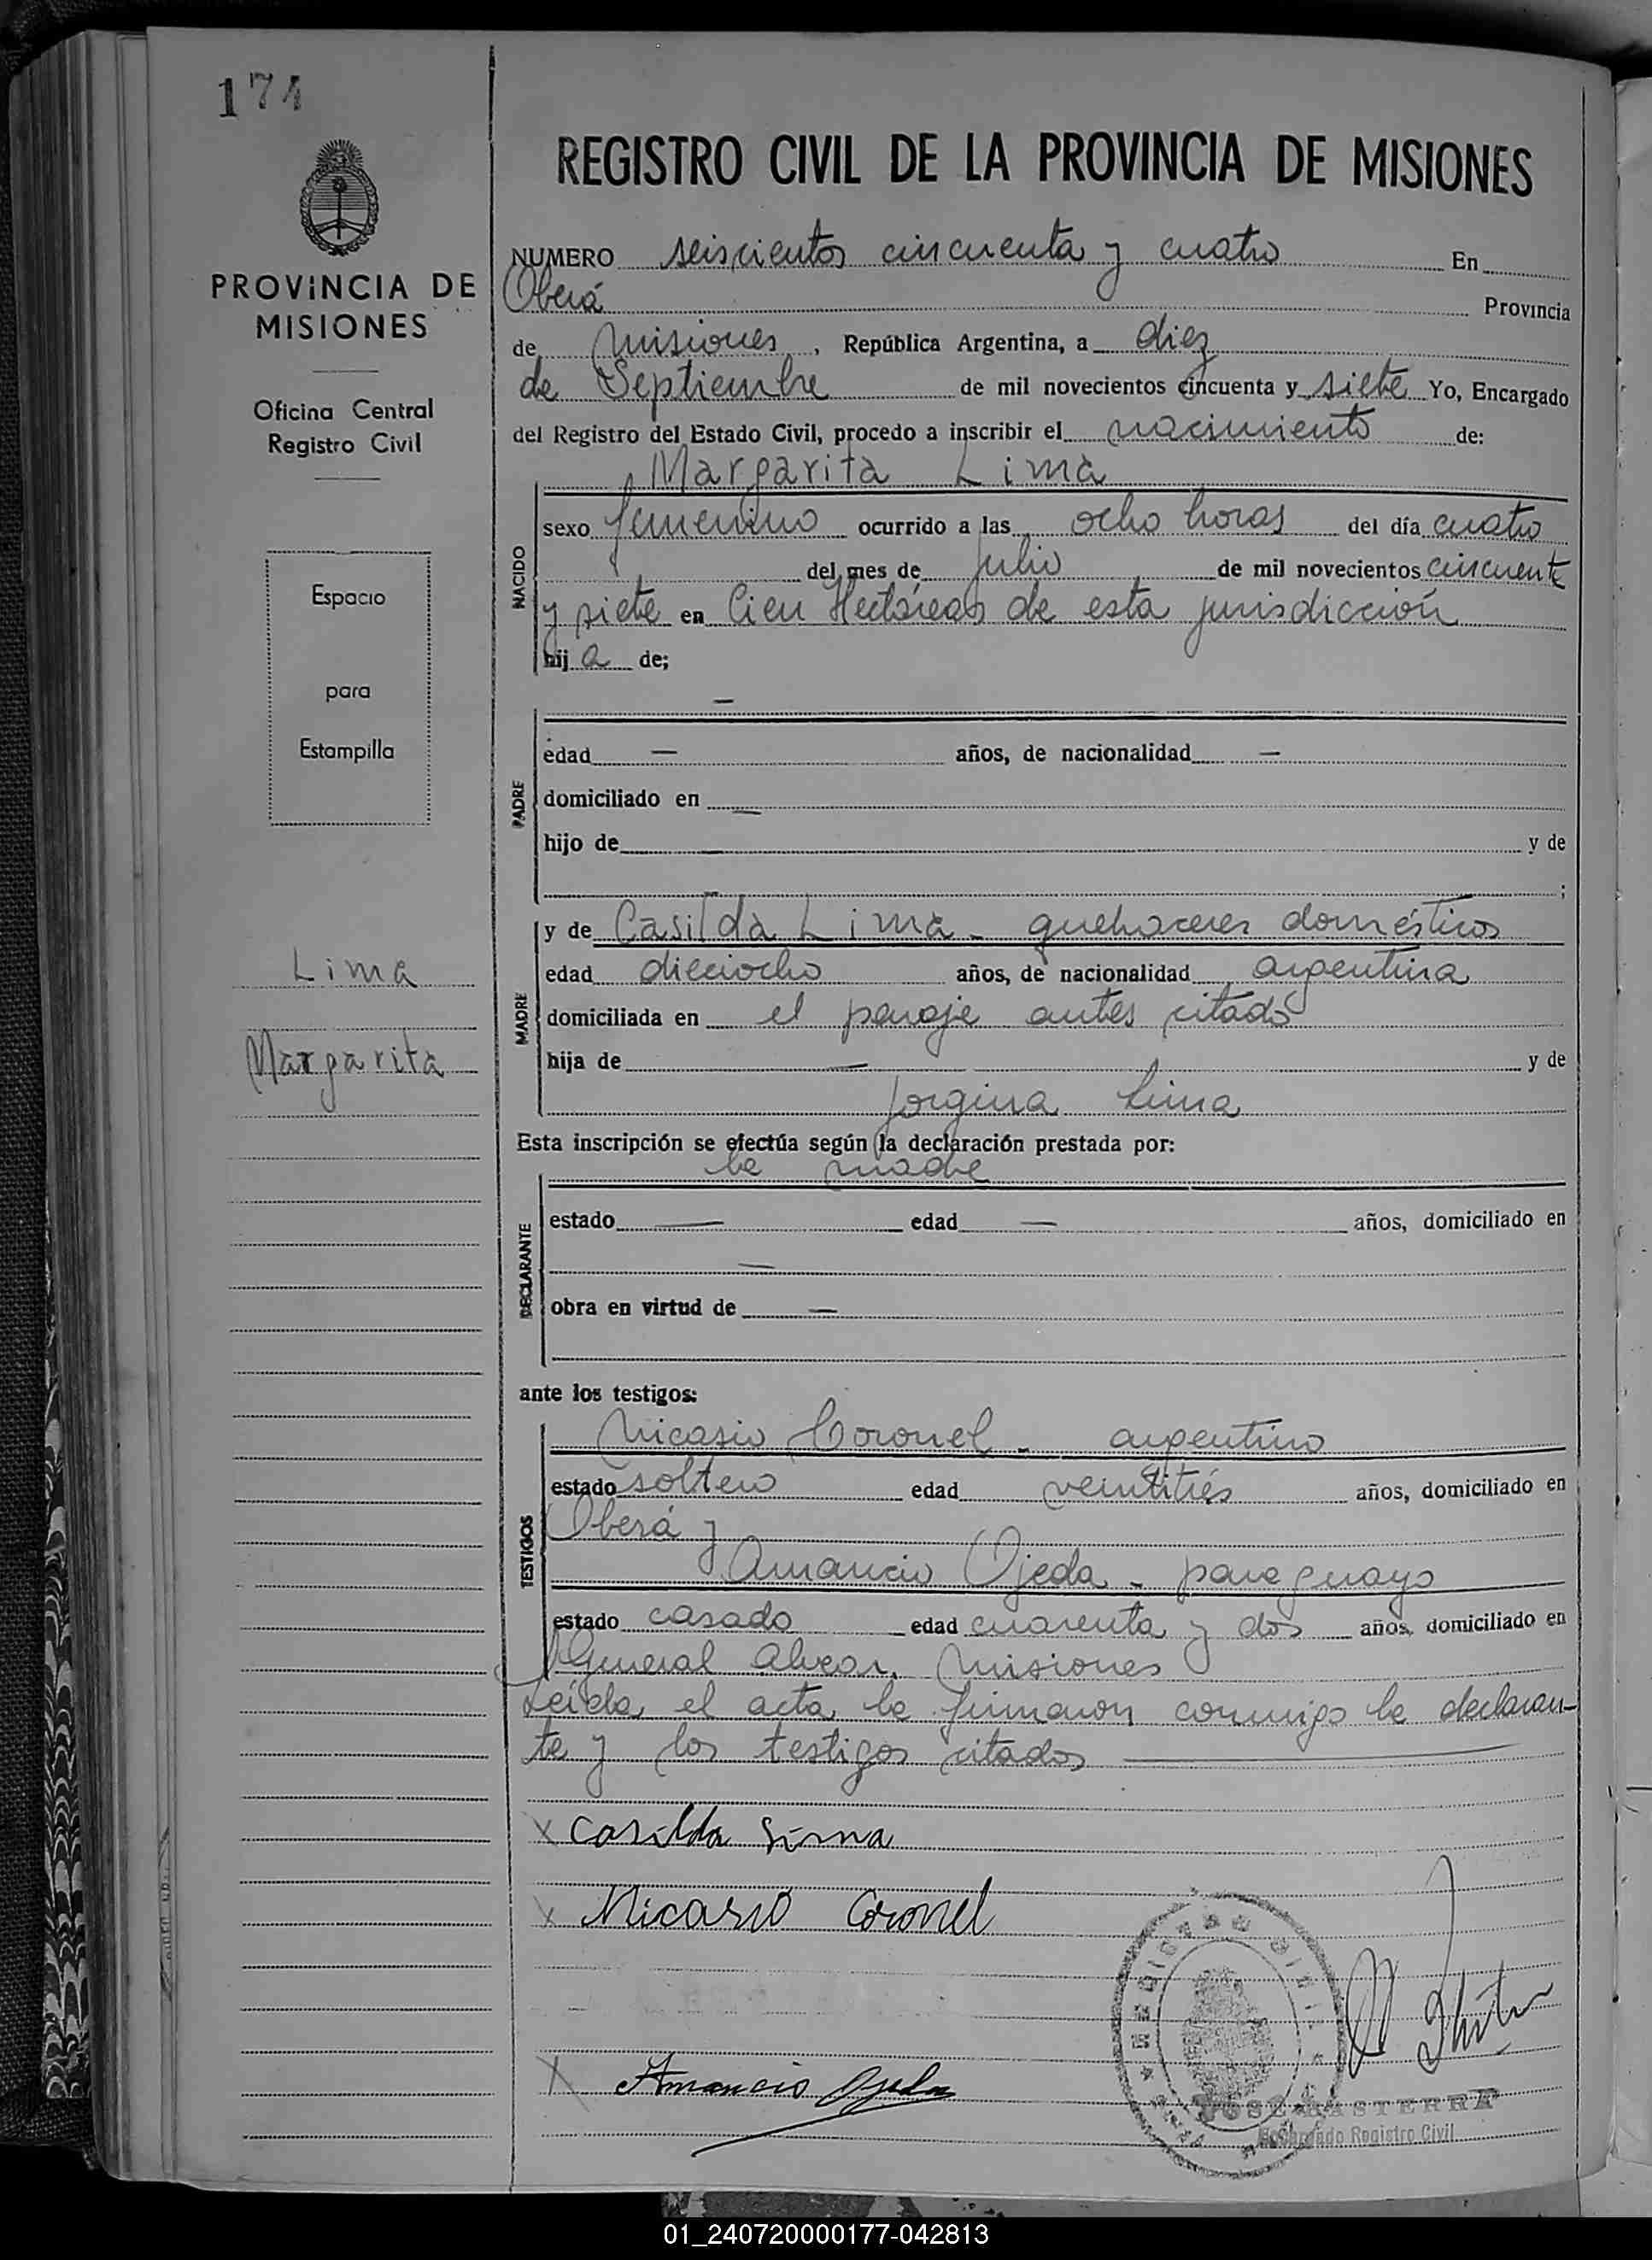 174
REGISTRO CIVIL DE LA PROVINCIA DE MISIONES
PROVINCIA DE
MISIONES
Oficina Central
Registro Civil
Espacio
para
Estampilla
Lima
Margarita
NUMERO seiscientos cincuenta y cuatro En
Oberá Provincia
de Misiones, República Argentina, a diez
de Septiembre de mil novecientos cincuenta y siete Yo, Encargado
del Registro del Estado Civil, procedo a inscribir el nacimiento de:
Margarita Lima
NACIDO
sexo femenino ocurrido a las ocho horas del día cuatro
del mes de julio de mil novecientos cincuenta
y siete en Cien Hectáreas de esta jurisdicción
hija de;
—
PADRE
edad — años, de nacionalidad —
domiciliado en —
hijo de — y de
— ;
MADRE
y de Casilda Lima - quehaceres domésticos
edad dieciocho años, de nacionalidad argentina
domiciliada en el paraje antes citado
hija de — y de
Jorgina Lima
Esta inscripción se efectúa según la declaración prestada por:
la madre
DECLARANTE
estado — edad — años, domiciliado en
—
obra en virtud de —
ante los testigos:
TESTIGOS
Nicasio Coronel - argentino
estado soltero edad veintitrés años, domiciliado en
Oberá y
Amancio Ojeda - paraguayo
estado casado edad cuarenta y dos años, domiciliado en
General Alvear, Misiones
Leída el acta la firmaron conmigo la declaran-
te y los testigos citados
x Casilda Lima
x Nicasio Coronel
x Amancio Ojeda
JOSE BASTERRA
Encargado Registro Civil
01_240720000177-042813